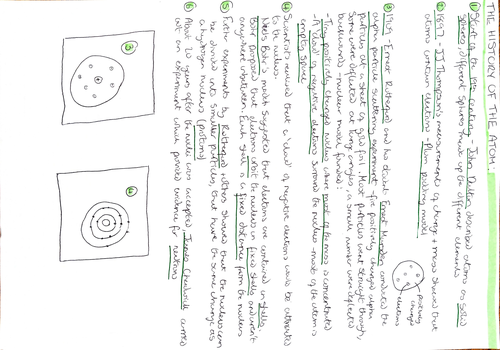 THE HISTORY OF THE ATOM:
① Start of the 19th century - John Dalton described atoms as solid
spheres, different spheres made up the different elements
② 1897 - JJ Thompson's measurements of charge + mass showed that
atoms contain electrons - Plum pudding model
positive
charge
electrons
③ 1909 - Ernest Rutherford and his student Ernest Marsden conducted the
alpha particle scattering experiment - fire positively charged alpha
particles at a sheet of gold foil. Most particles went straight though,
some were deflected at large angles, a small number were deflected
backwards - nuclear model formed:
- Tiny positively charged nucleus where most of the mass is concentrated
- A 'cloud' of negative electrons surround the nucleus - most of the atom is
empty space
④ Scientists realised that a 'cloud' of negative electrons would be attracted
to the nucleus.
Niels Bohr's model suggested that electrons are contained in shells.
Bohr proposed that electrons orbit the nucleus in fixed shells and aren't
anywhere inbetween. Each shell is a fixed distance from the nucleus
⑤ Further experiments by Rutherford + others showed that the nucleus can
be divided into smaller particles, that have the same charge as
a hydrogen nucleus (protons)
⑥ About 20 years after the nuclei was accepted, James Chadwick carried
out an experiment which provided evidence for neutrons
③
④